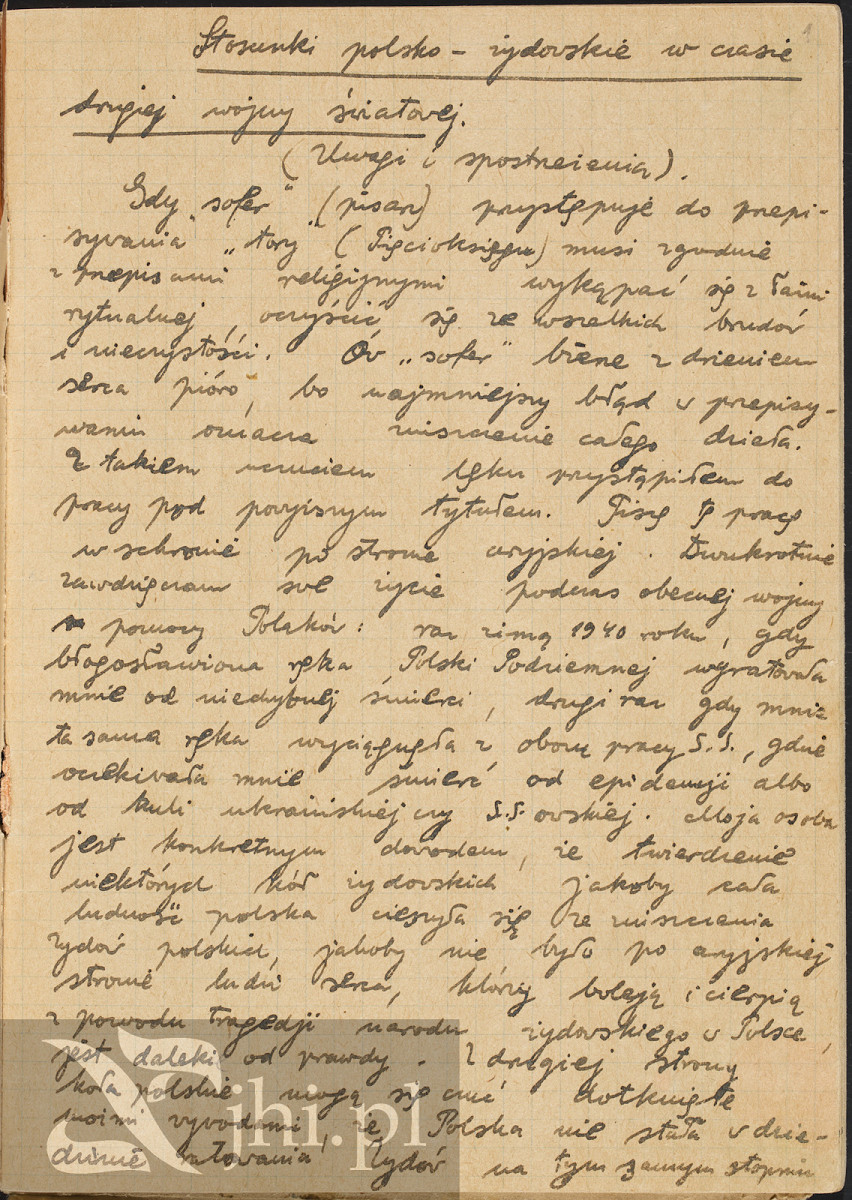 1
Stosunki polsko – żydowskie w czasie
drugiej wojny światowej.
(Uwagi i spostrzeżenia).
Gdy „sofer" (pisarz) przystępuje do przepi-
sywania „tory" (Pięcioksięgu) musi zgodnie
z przepisami religijnymi wykąpać się z łaźni
rytualnej, oczyścić się ze wszelkich brudów
i nieczystości. Ów „sofer" bierze z drżeniem
serca pióro, bo najmniejszy błąd w przepisy-
waniu oznacza zniszczenie całego dzieła.
Z takiem uczuciem lęku przystąpiłem do
pracy pod powyższym tytułem. Piszę tę pracę
w schronie po stronie aryjskiej. Dwukrotnie
zawdzięczam swe życie podczas obecnej wojny
pomocy Polaków: raz zimą 1940 roku, gdy
błogosławiona ręka Polski Podziemnej wyratowała
mnie od niechybnej śmierci, drugi raz gdy mnie
ta sama ręka wyciągnęła z obozu pracy S.S., gdzie
oczekiwała mnie śmierć od epidemji albo
od kuli ukraińskiej czy S.S.owskiej. Moja osoba
jest konkretnym dowodem, że twierdzenie
niektórych kół żydowskich jakoby cała
ludność polska cieszyła się ze zniszczenia
Żydów polskich, jakoby nie było po aryjskiej
stronie ludzi serca, którzy boleją i cierpią
z powodu tragedji narodu żydowskiego w Polsce,
jest daleki od prawdy. Z drugiej strony
koła polskie mogą się czuć dotknięte
moimi wywodami, że Polska nie stała w dzie-
dzinie ratowania Żydów na tym samym stopniu
jhi.pl